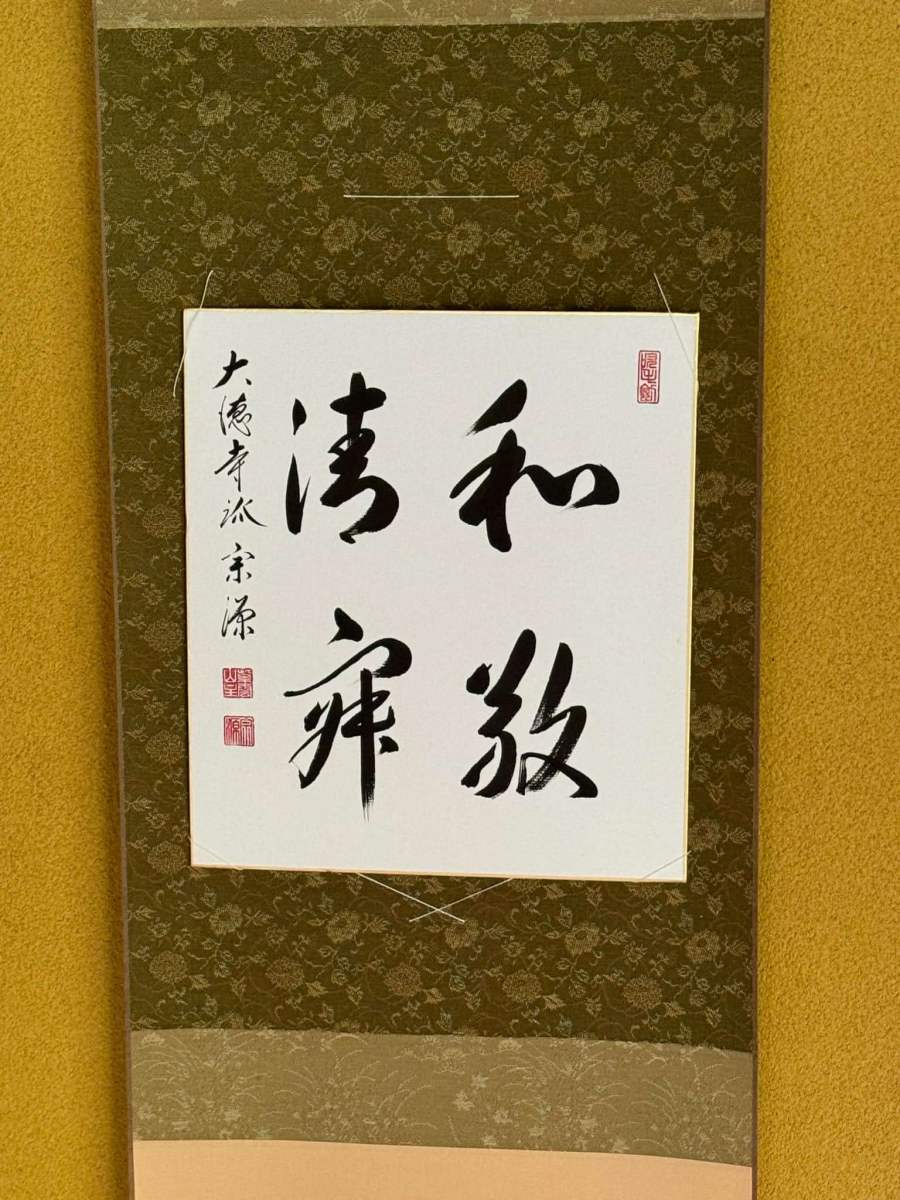 和敬
清寂
大徳寺派 宗漂